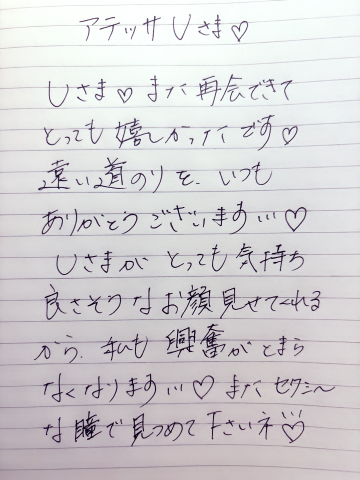 アテッサUさま♡
Uさま♡また再会できて
とっても嬉しかったです♡
遠い道のりを、いつも
ありがとうございます…♡
Uさまが とっても気持ち
良さそうなお顔見せてくれる
から、私も興奮がとまら
なくなります…♡またセクシ〜
な瞳で見つめて下さいネ♡